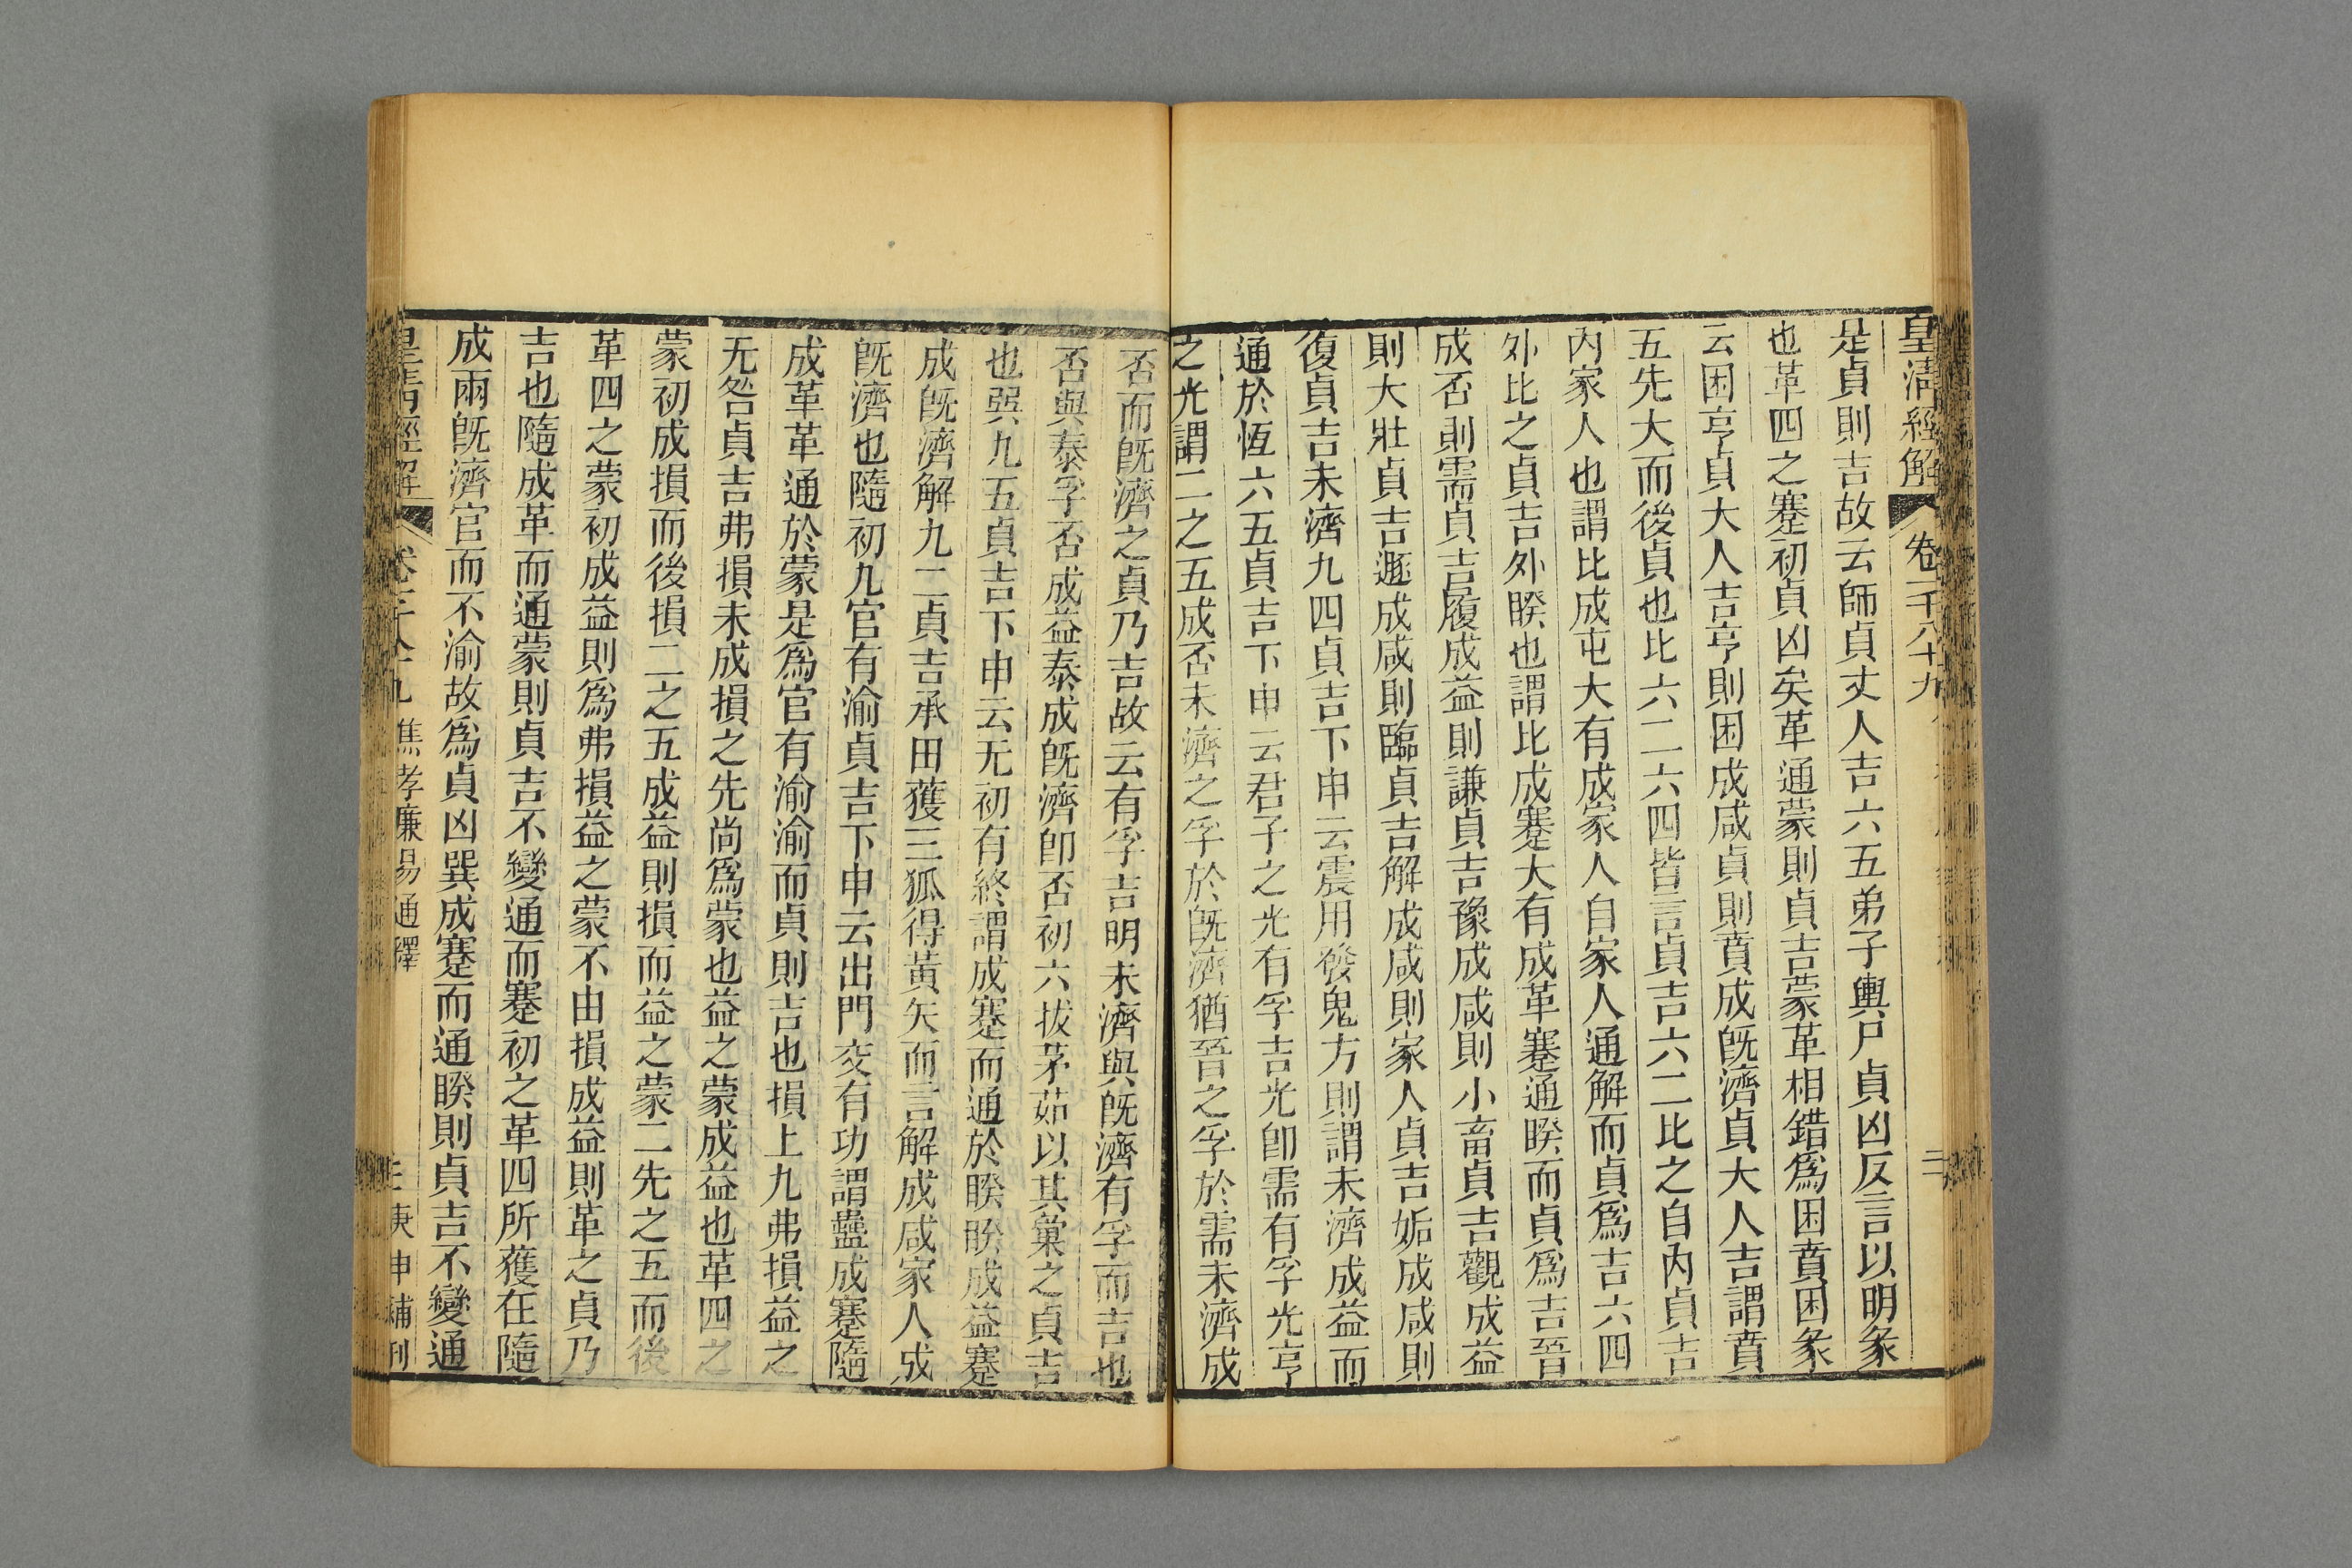 皇清經解 卷一千八十九 二
是貞則吉故云師貞丈人吉六五弟子輿尸貞凶反言以明彖
也革四之蹇初貞凶矣革通蒙則貞吉蒙革相錯爲困賁困彖
云困亨貞大人吉亨則困成咸貞則賁成旣濟貞大人吉謂賁
五先大而後貞也比六二六四皆言貞吉六二比之自內貞吉
內家人也謂比成屯大有成家人自家人通解而貞爲吉六四
外比之貞吉外睽也謂比成蹇大有成革蹇通睽而貞爲吉晉
成否則需貞吉履成益則謙貞吉豫成咸則小畜貞吉觀成益
則大壯貞吉遯成咸則臨貞吉解成咸則家人貞吉姤成咸則
復貞吉未濟九四貞吉下申云震用發鬼方則謂未濟成益而
通於恆六五貞吉下申云君子之光有孚吉光卽需有孚光亨
之光謂二之五成否未濟之孚於旣濟猶晉之孚於需未濟成
否而旣濟之貞乃吉故云有孚吉明未濟與旣濟有孚而吉也
否與泰孚否成益泰成旣濟卽否初六拔茅茹以其彙之貞吉
也巽九五貞吉下申云无初有終謂成蹇而通於睽睽成益蹇
成旣濟解九二貞吉承田獲三狐得黃矢而言解成咸家人成
旣濟也隨初九官有渝貞吉下申云出門交有功謂蠱成蹇隨
成革革通於蒙是爲官有渝渝而貞則吉也損上九弗損益之
无咎貞吉弗損未成損之先尚爲蒙也益之蒙成益也革四之
蒙初成損而後損二之五成益則損而益之蒙二先之五而後
革四之蒙初成益則爲弗損益之蒙不由損成益則革之貞乃
吉也隨成革而通蒙則貞吉不變通而蹇初之革四所獲在隨
成兩旣濟官而不渝故爲貞凶巽成蹇而通睽則貞吉不變通
皇清經解 卷一千八十九 焦孝廉易通釋 庚申補刊